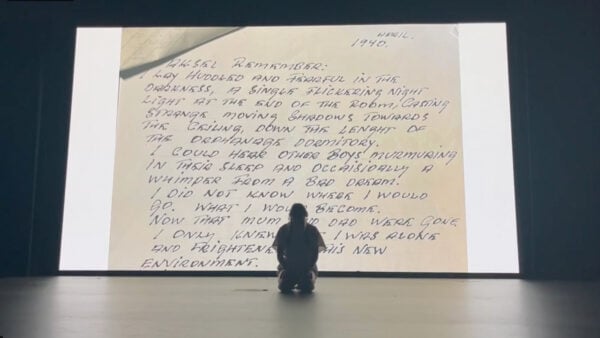 APRIL.
1940.
AKSEL REMEMBER:
I LAY HUDDLED AND FEARFUL IN THE
DARKNESS, A SINGLE FLICKERING NIGHT
LIGHT AT THE END OF THE ROOM, CASTING
STRANGE MOVING SHADOWS TOWARDS
THE CEILING, DOWN THE LENGHT OF
THE ORPHANAGE DORMITORY.
I COULD HEAR OTHER BOYS MURMURING
IN THEIR SLEEP AND OCCAISIALLY A
WHIMPER FROM A BAD DREAM.
I DID NOT KNOW WHERE I WOULD
GO. WHAT I WOULD BECOME.
NOW THAT MUM AND DAD WERE GONE
I ONLY KNEW I WAS ALONE
AND FRIGHTENED THIS NEW
ENVIRONMENT.